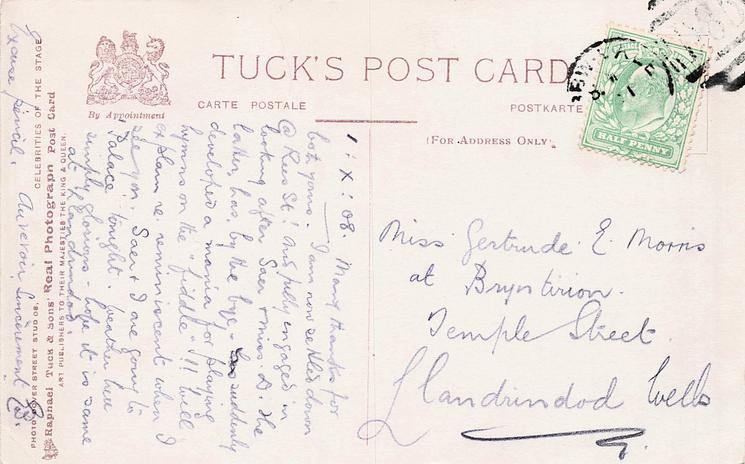 TUCK'S POST CARD
By Appointment
CARTE POSTALE
POSTKARTE
(FOR ADDRESS ONLY)
HALF PENNY
CELEBRITIES OF THE STAGE
Raphael Tuck & Sons' Real Photograph Post Card
ART PUBLISHERS TO THEIR MAJESTIES THE KING & QUEEN.
PHOTO
STREET STUDIOS.
1 : X : 08. Many thanks for
both yours. I am now settled down
@ Rees St. and fully engaged in
looking after Saer & Miss D. The
latter, has, by the bye - suddenly
developed a mania for playing
hymns on the "fiddle" !! Will
re reminiscent when I
see you. Saer & I are going to
Palace tonight. Weather here
simply glorious - hope it is same
at Llandrindod.
Au revoir, Sincerement
Excuse pencil.
Miss Gertrude E. Morris
at Brynstirion.
Temple Street.
Llandrindod Wells